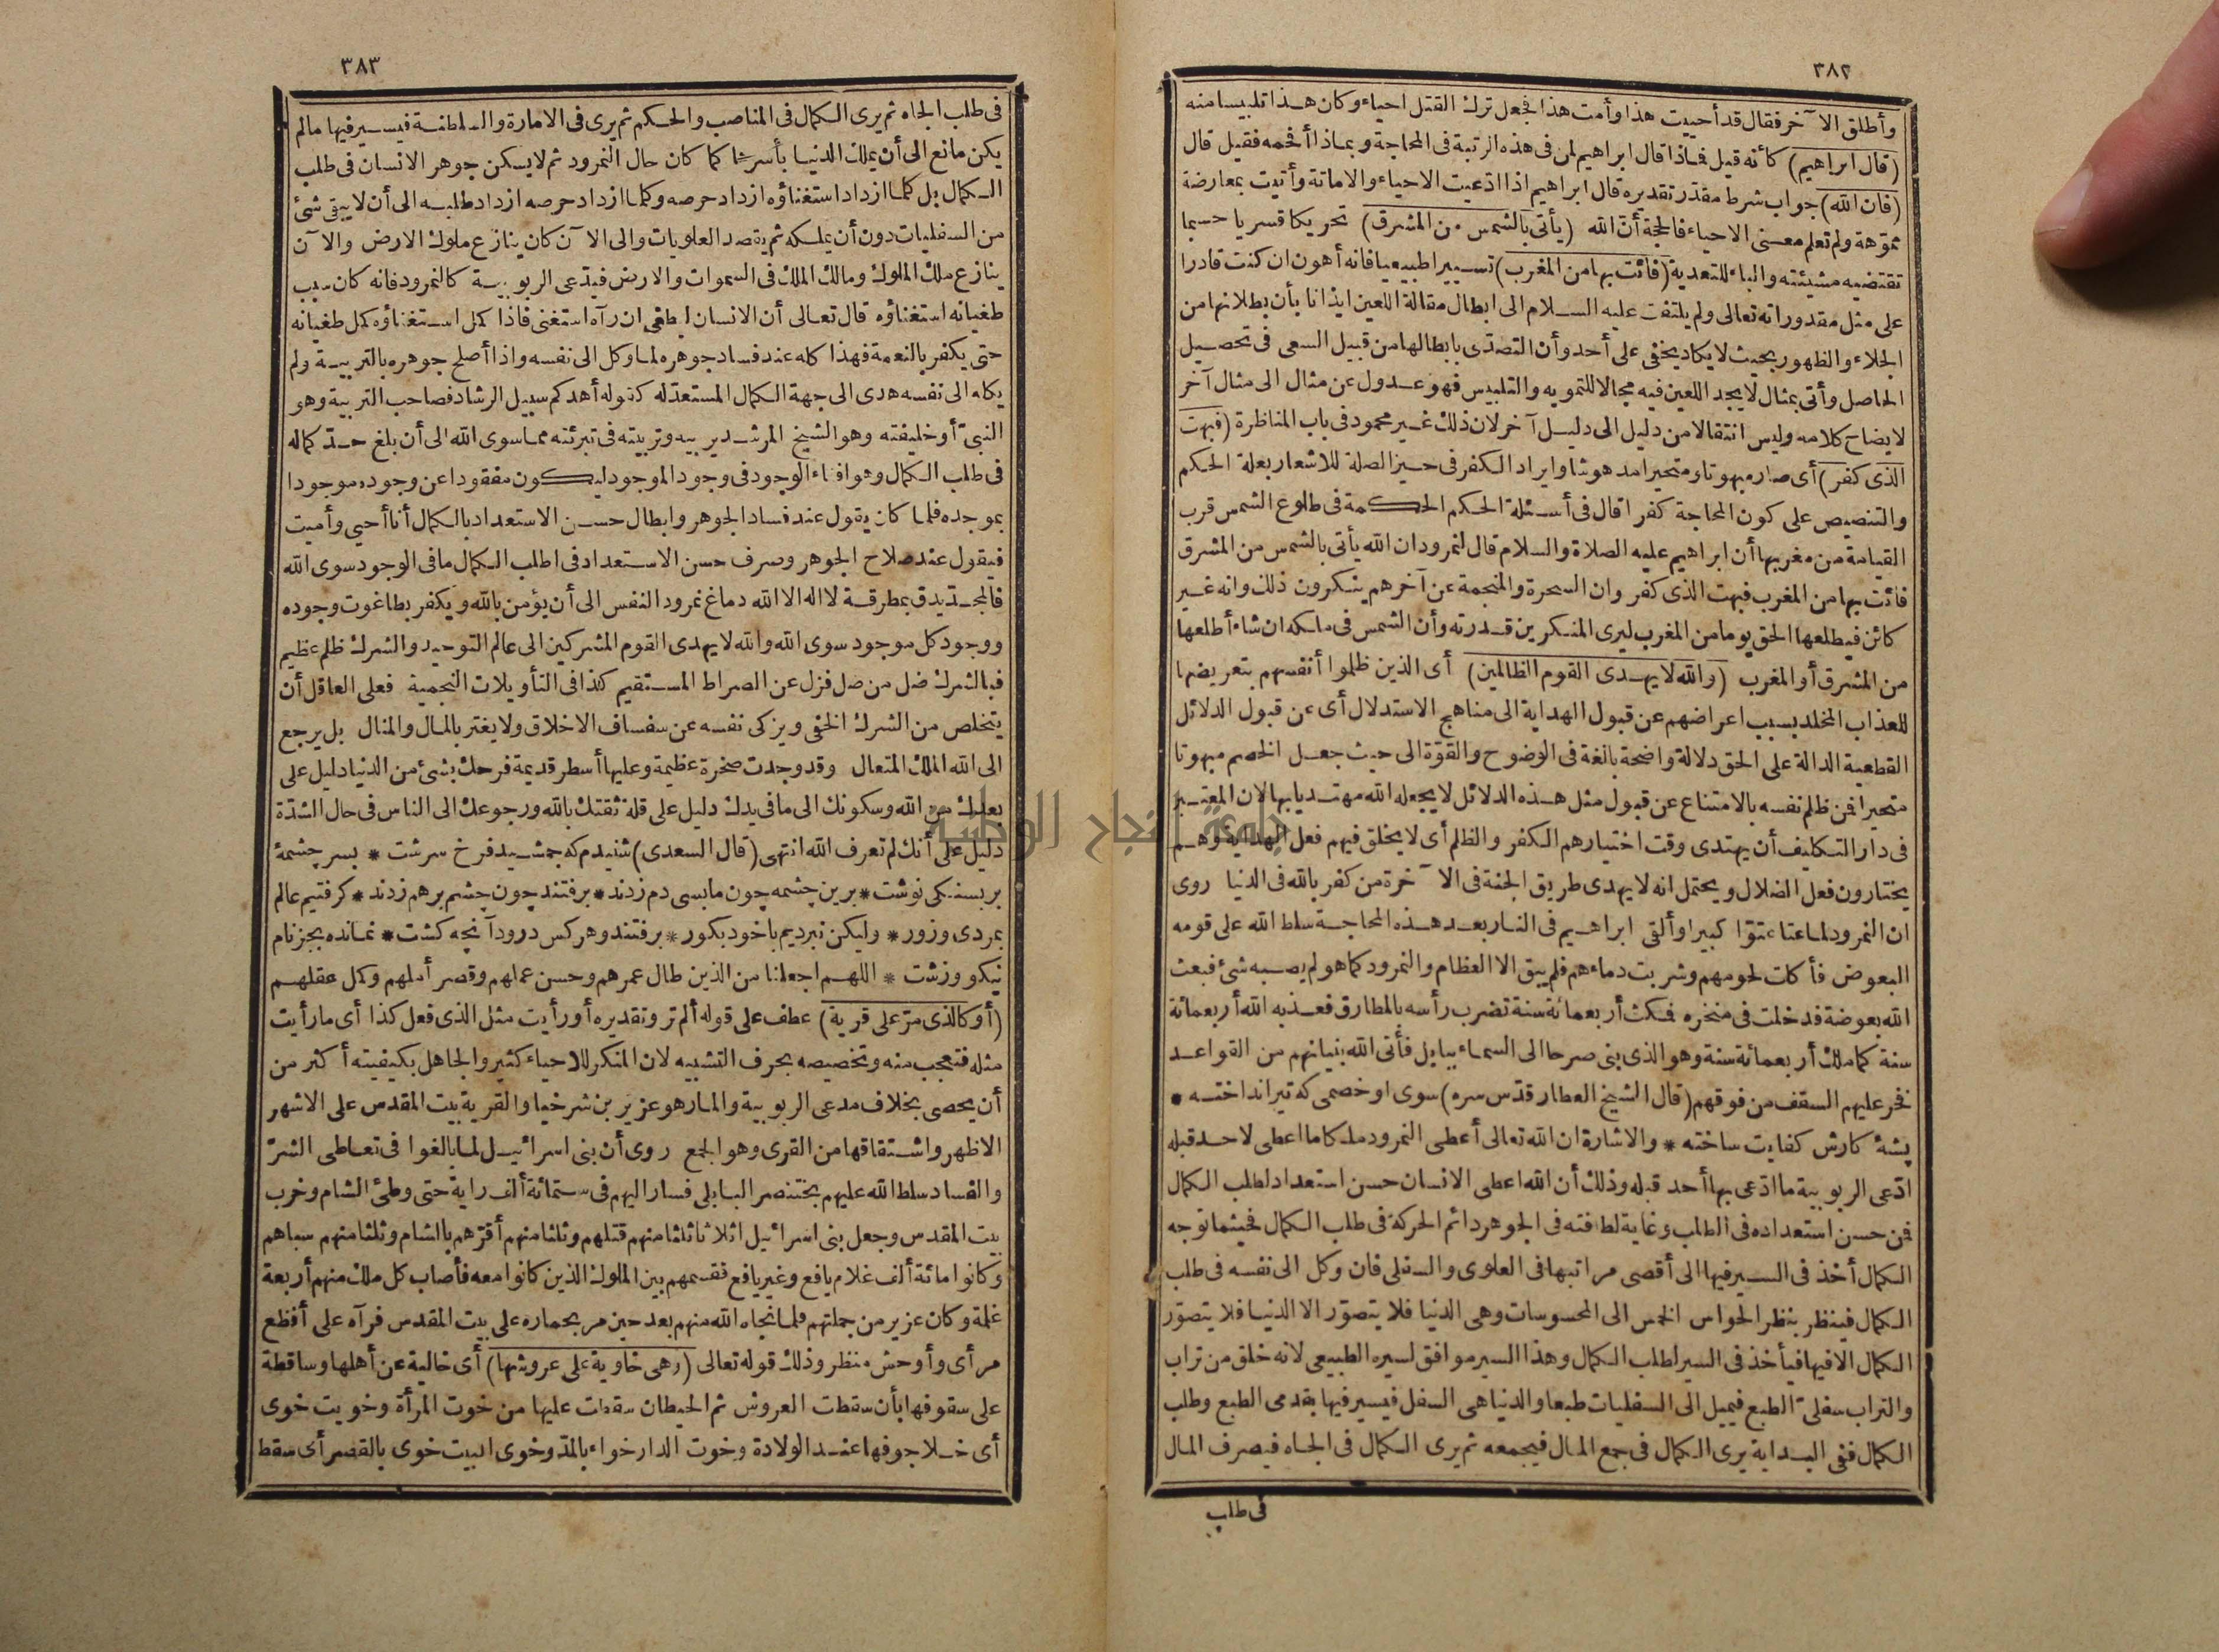 ٣٨٢
وأطلق الآخر فقال قد أحييت هذا وأمت هذا فجعل ترك القتل احياء وكان هذا تلبيسا منه
(قال ابراهيم) كأنه قيل فماذا قال ابراهيم لمن فى هذه الرتبة فى المحاجة وبماذا أفحمه فقيل قال
(فان الله) جواب شرط مقدر تقديره قال ابراهيم اذا ادّعيت الاحياء والاماتة وأتيت بمعارضة
مموّهة ولم تعلم معنى الاحياء فالحجة أنّ الله (يأتى بالشمس من المشرق) تحريكا قسريا حسبما
تقتضيه مشيئته والباء للتعدية (فائت بها من المغرب) تسييرا طبيعيا فانه أهون ان كنت قادرا
على مثل مقدوراته تعالى ولم يلتفت عليه السلام الى ابطال مقالة اللعين ايذانا بأن بطلانها من
الجلاء والظهور بحيث لا يكاد يخفى على أحد وأن التصدّى بابطالها من قبيل السعى فى تحصيل
الحاصل وأتى بمثال لا يجد اللعين فيه مجالا للتمويه والتلبيس فهو عدول عن مثال الى مثال آخر
لايضاح كلامه وليس انتقالا من دليل الى دليل آخر لان ذلك غير محمود فى باب المناظرة (فبهت
الذى كفر) أى صار مبهوتا ومتحيرا مدهوشا وايراد الكفر فى حيز الصلة للاشعار بعلة الحكم
والتنصيص على كون المحاجة كفرا قال فى أسئلة الحكم الحكمة فى طلوع الشمس قرب
القيامة من مغربها أن ابراهيم عليه الصلاة والسلام قال لنمرود ان الله يأتى بالشمس من المشرق
فائت بها من المغرب فبهت الذى كفر وان السحرة والمنجمة عن آخرهم ينكرون ذلك وانه غير
كائن فيطلعها الحق يوما من المغرب ليرى المنكرين قدرته وأن الشمس فى ملكه ان شاء أطلعها
من المشرق أو المغرب (والله لا يهدى القوم الظالمين) أى الذين ظلموا أنفسهم بتعريضها
للعذاب المخلد بسبب اعراضهم عن قبول الهداية الى مناهج الاستدلال أى عن قبول الدلائل
القطعية الدالة على الحق دلالة واضحة بالغة فى الوضوح والقوّة الى حيث جعل الخصم مبهوتا
متحيرا فمن ظلم نفسه بالامتناع عن قبول مثل هذه الدلائل لا يجعله الله مهتديا بها لان المعتبر
فى دار التكليف أن يهتدى وقت اختيارهم الكفر والظلم أى لا يخلق فيهم فعل الهداية وهم
يختارون فعل الضلال ويحتمل انه لا يهدى طريق الجنة فى الآخرة من كفر بالله فى الدنيا روى
ان النمرود لما عتا عتوّا كبيرا وألقى ابراهيم فى النار بعد هذه المحاجة سلط الله على قومه
البعوض فأكلت لحومهم وشربت دماءهم فلم يبق الا العظام والنمرود كما هو لم يصبه شئ فبعث
الله بعوضة فدخلت فى منخره فمكث أربعمائة سنة تضرب رأسه بالمطارق فعذبه الله أربعمائة
سنة كما ملك أربعمائة سنة وهو الذى بنى صرحا الى السماء ببابل فأتى الله بنيانهم من القواعد
فخر عليهم السقف من فوقهم (قال الشيخ العطار قدّس سره) سوى او خصمى كه تير انداخته *
پشۀ كارش كفايت ساخته * والاشارة ان الله تعالى أعطى النمرود ملكا ما اعطى لاحد قبله
ادّعى الربوبية ما ادّعى بها أحد قبله وذلك أن الله اعطى الانسان حسن استعداد لطلب الكمال
فمن حسن استعداده فى الطلب وغاية لطافته فى الجوهر دائم الحركة فى طلب الكمال فحيثما توجه
الكمال أخذ فى السير فيها الى أقصى مراتبها فى العلوى والسفلى فان وكل الى نفسه فى طلب
الكمال فينظر بنظر الحواس الخمس الى المحسوسات وهى الدنيا فلا يتصوّر الا الدنيا فلا يتصوّر
الكمال الا فيها فيأخذ فى السير لطلب الكمال وهذا السير موافق لسيره الطبيعى لانه خلق من تراب
والتراب سفلىّ الطبع فيميل الى السفليات طبعا والدنيا هى السفل فيسير فيها بقدمى الطبع وطلب
الكمال ففى البداية يرى الكمال فى جمع المال فيجمعه ثم يرى الكمال فى الجاه فيصرف المال
فى طلب
٣٨٣
فى طلب الجاه ثم يرى الكمال فى المناصب والحكم ثم يرى فى الامارة والسلطنة فيسير فيها ما لم
يكن مانع الى أن يملك الدنيا بأسرها كما كان حال النمرود ثم لا يسكن جوهر الانسان فى طلب
الكمال بل كلما ازداد استغناؤه ازداد حرصه وكلما ازداد حرصه ازداد طلبه الى أن لا يبقى شئ
من السفليات دون أن يملكه ثم يقصد العلويات والى الآن كان ينازع ملوك الارض والآن
ينازع ملك الملوك ومالك الملك فى السموات والارض فيدّعى الربوبية كالنمرود فانه كان سبب
طغيانه استغناؤه قال تعالى أن الانسان ليطغى ان رآه استغنى فاذا كمل استغناؤه كمل طغيانه
حتى يكفر بالنعمة فهذا كله عند فساد جوهره لما وكل الى نفسه واذا أصلح جوهره بالتربية ولم
يكله الى نفسه هدى الى جهة الكمال المستعدّ له كقوله أهدكم سبيل الرشاد فصاحب التربية وهو
النبىّ أو خليفته وهو الشيخ المرشد يربيه وتربيته فى تبرئته مما سوى الله الى أن بلغ حدّ كماله
فى طلب الكمال وهو افناء الوجود فى وجود الموجود ليكون مفقودا عن وجوده موجودا
بموجده فلما كان يقول عند فساد الجوهر وابطال حسن الاستعداد بالكمال أنا أحيى وأميت
فيقول عند صلاح الجوهر وصرف حسن الاستعداد فى اطلب الكمال ما فى الوجود سوى الله
فالمجدّ يدق بمطرقة لا اله الا الله دماغ نمرود النفس الى أن يؤمن بالله ويكفر بطاغوت وجوده
ووجود كل موجود سوى الله والله لا يهدى القوم المشركين الى عالم التوحيد والشرك ظلم عظيم
فبالشرك ضل من ضل فزل عن الصراط المستقيم كذا فى التأويلات النجمية فعلى العاقل أن
يتخلص من الشرك الخفى ويزكى نفسه عن سفساف الاخلاق ولا يغتر بالمال والمنال بل يرجع
الى الله الملك المتعال وقد وجدت صخرة عظيمة وعليها أسطر قديمة فرحك بشئ من الدنيا دليل على
بعدك من الله وسكونك الى ما فى يدك دليل على قلة ثقتك بالله ورجوعك الى الناس فى حال الشدّة
دليل على أنك لم تعرف الله انتهى (قال السعدى) شنيدم كه جمشيد فرخ سرشت * بسر چشمۀ
بر بسنكى نوشت * برين چشمه چون ما بسى دم زدند * برفتند چون چشم برهم زدند * كرفتيم عالم
بمردى وزور * وليكن نبرديم با خود بكور * برفتند وهركس درود آنچه كشت * نمانده بجز نام
نيكو وزشت * اللهم اجعلنا من الذين طال عمرهم وحسن عملهم وقصر أملهم وكمل عقلهم
(أو كالذى مرّ على قرية) عطف على قوله ألم تر وتقديره أو رأيت مثل الذى فعل كذا أى ما رأيت
مثله فتعجب منه وتخصيصه بحرف التشبيه لان المنكر للاحياء كثير والجاهل بكيفيته أكثر من
أن يحصى بخلاف مدعى الربوبية والمار هو عزير بن شرخيا والقرية بيت المقدس على الاشهر
الاظهر واشتقاقها من القرى وهو الجمع روى أن بنى اسرائيل لما بالغوا فى تعاطى الشرّ
والفساد سلط الله عليهم بختنصر البابلى فسار اليهم فى ستمائة ألف راية حتى وطئ الشام وخرب
بيت المقدس وجعل بنى اسرائيل اثلاثا ثلثا منهم قتلهم وثلثا منهم أقرّهم بالشام وثلثا منهم سباهم
وكانوا مائة ألف غلام يافع وغير يافع فقسمهم بين الملوك الذين كانوا معه فأصاب كل ملك منهم أربعة
غلمة وكان عزير من جملتهم فلما نجاه الله منهم بعد حين مر بحماره على بيت المقدس فرآه على أفظع
مرأى وأوحش منظر وذلك قوله تعالى (وهى خاوية على عروشها) أى خالية عن أهلها وساقطة
على سقوفها بأن سقطت العروش ثم الحيطان سقطت عليها من خوت المرأة وخويت خوى
أى خلا جوفها عند الولادة وخوت الدار خواء بالمدّ وخوى البيت خوى بالقصر أى سقط
جامعة النجاح الوطنية